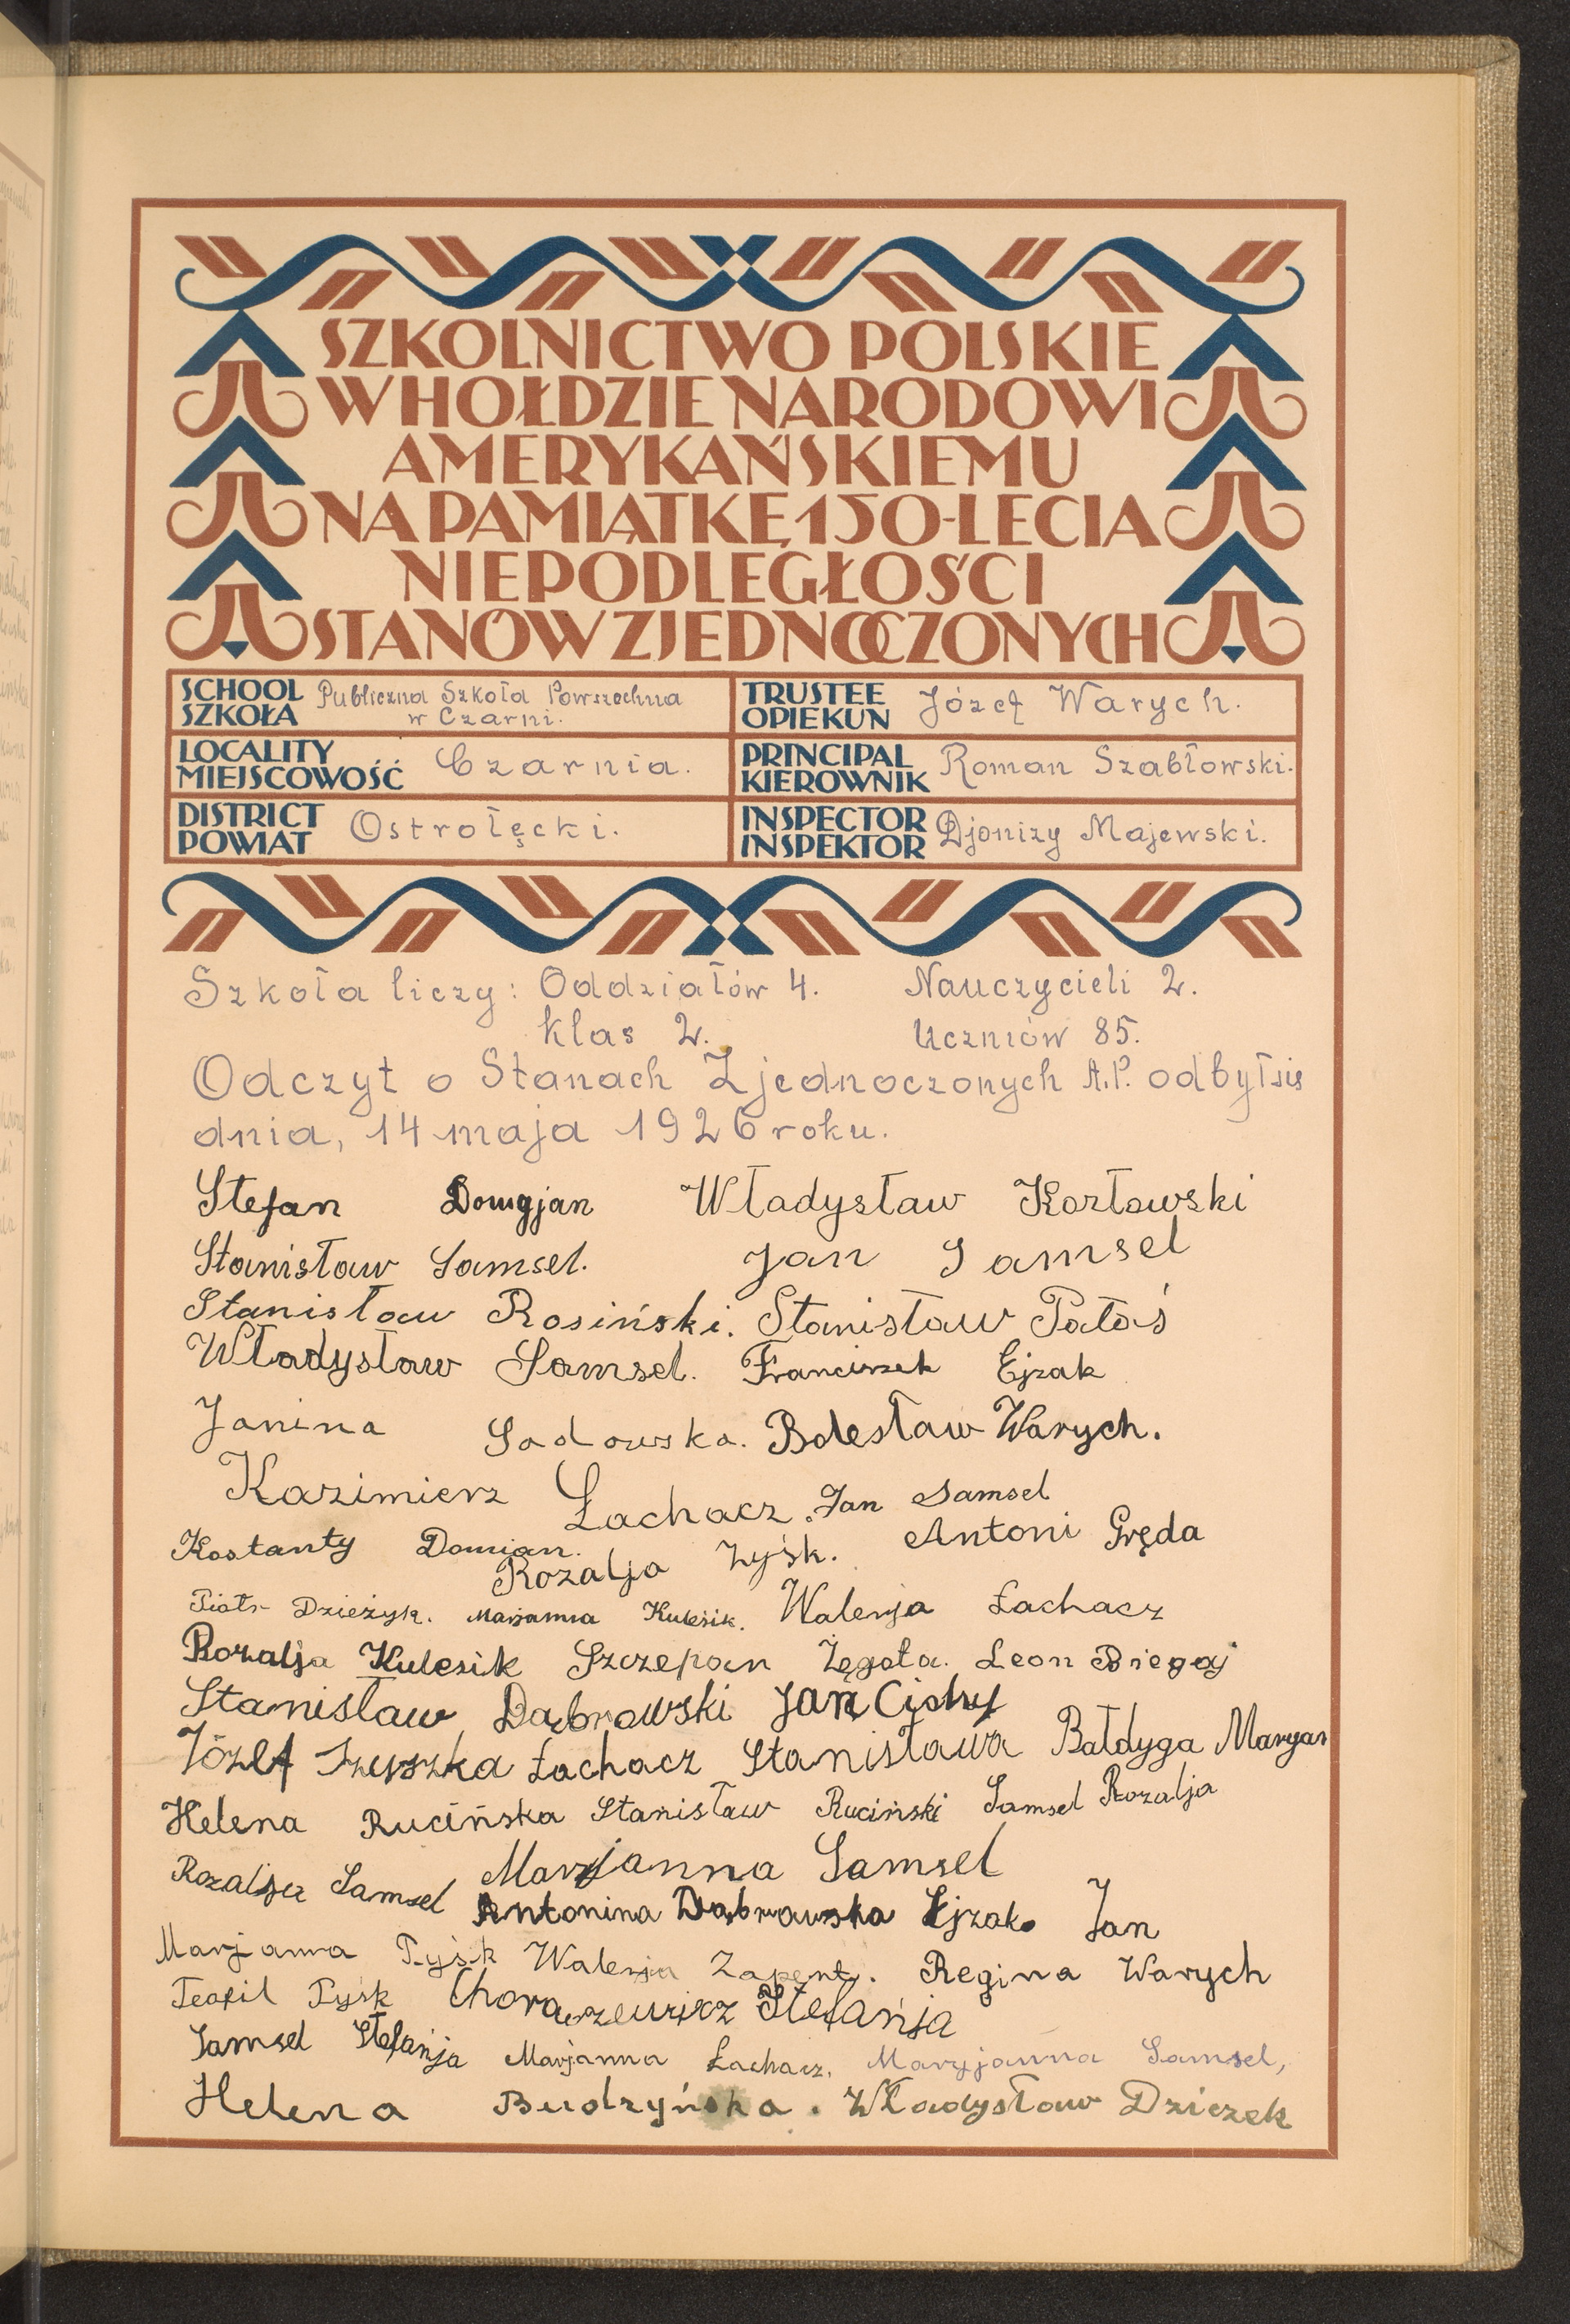 SZKOLNICTWO POLSKIE
W HOŁDZIE NARODOWI
AMERYKAŃSKIEMU
NA PAMIĄTKĘ 150-LECIA
NIEPODLEGŁOŚCI
STANÓW ZJEDNOCZONYCH
SCHOOL SZKOŁA Publiczna Szkoła Powszechna w Czarni.
TRUSTEE OPIEKUN Józef Warych.
LOCALITY MIEJSCOWOŚĆ Czarnia.
PRINCIPAL KIEROWNIK Roman Szabłowski.
DISTRICT POWIAT Ostrołęcki.
INSPECTOR INSPEKTOR Djonizy Majewski.
Szkoła liczy: Oddziałów 4. Nauczycieli 2.
klas 2. Uczniów 85.
Odczyt o Stanach Zjednoczonych A.P. odbył się
dnia, 14 maja 1926 roku.
Stefan Domyjan Władysław Kozłowski
Stanisław Samsel. Jan Samsel
Stanisław Rosiński. Stanisław Pałaś
Władysław Samsel. Franciszek Ejzak
Janina Sadowska. Bolesław Warych.
Kazimierz Łachacz. Jan Samsel
Kostanty Domian. Rozalja Zyśk. Antoni Gręda
Piotr Dzieżyk. Marjanna Kulesik. Walerja Łachacz
Rozalja Kulesik Szczepan Żęgota. Leon Biegaj
Stanisław Dąbrowski Jan Cichy
Józef Szyszka Łachacz Stanisława Bałdyga Maryan
Helena Rucińska Stanisław Ruciński Samsel Rozalja
Rozalija Samsel Marjanna Samsel
Antonina Dąbrowska Ejzak Jan
Marjanna Pyśk Walerja Regina Warych
Teofil Pyśk Stefańja
Samsel Stefańja Marjanna Łachacz. Maryjanna Samsel,
Helena Budzyńska. Władysław Dziczek